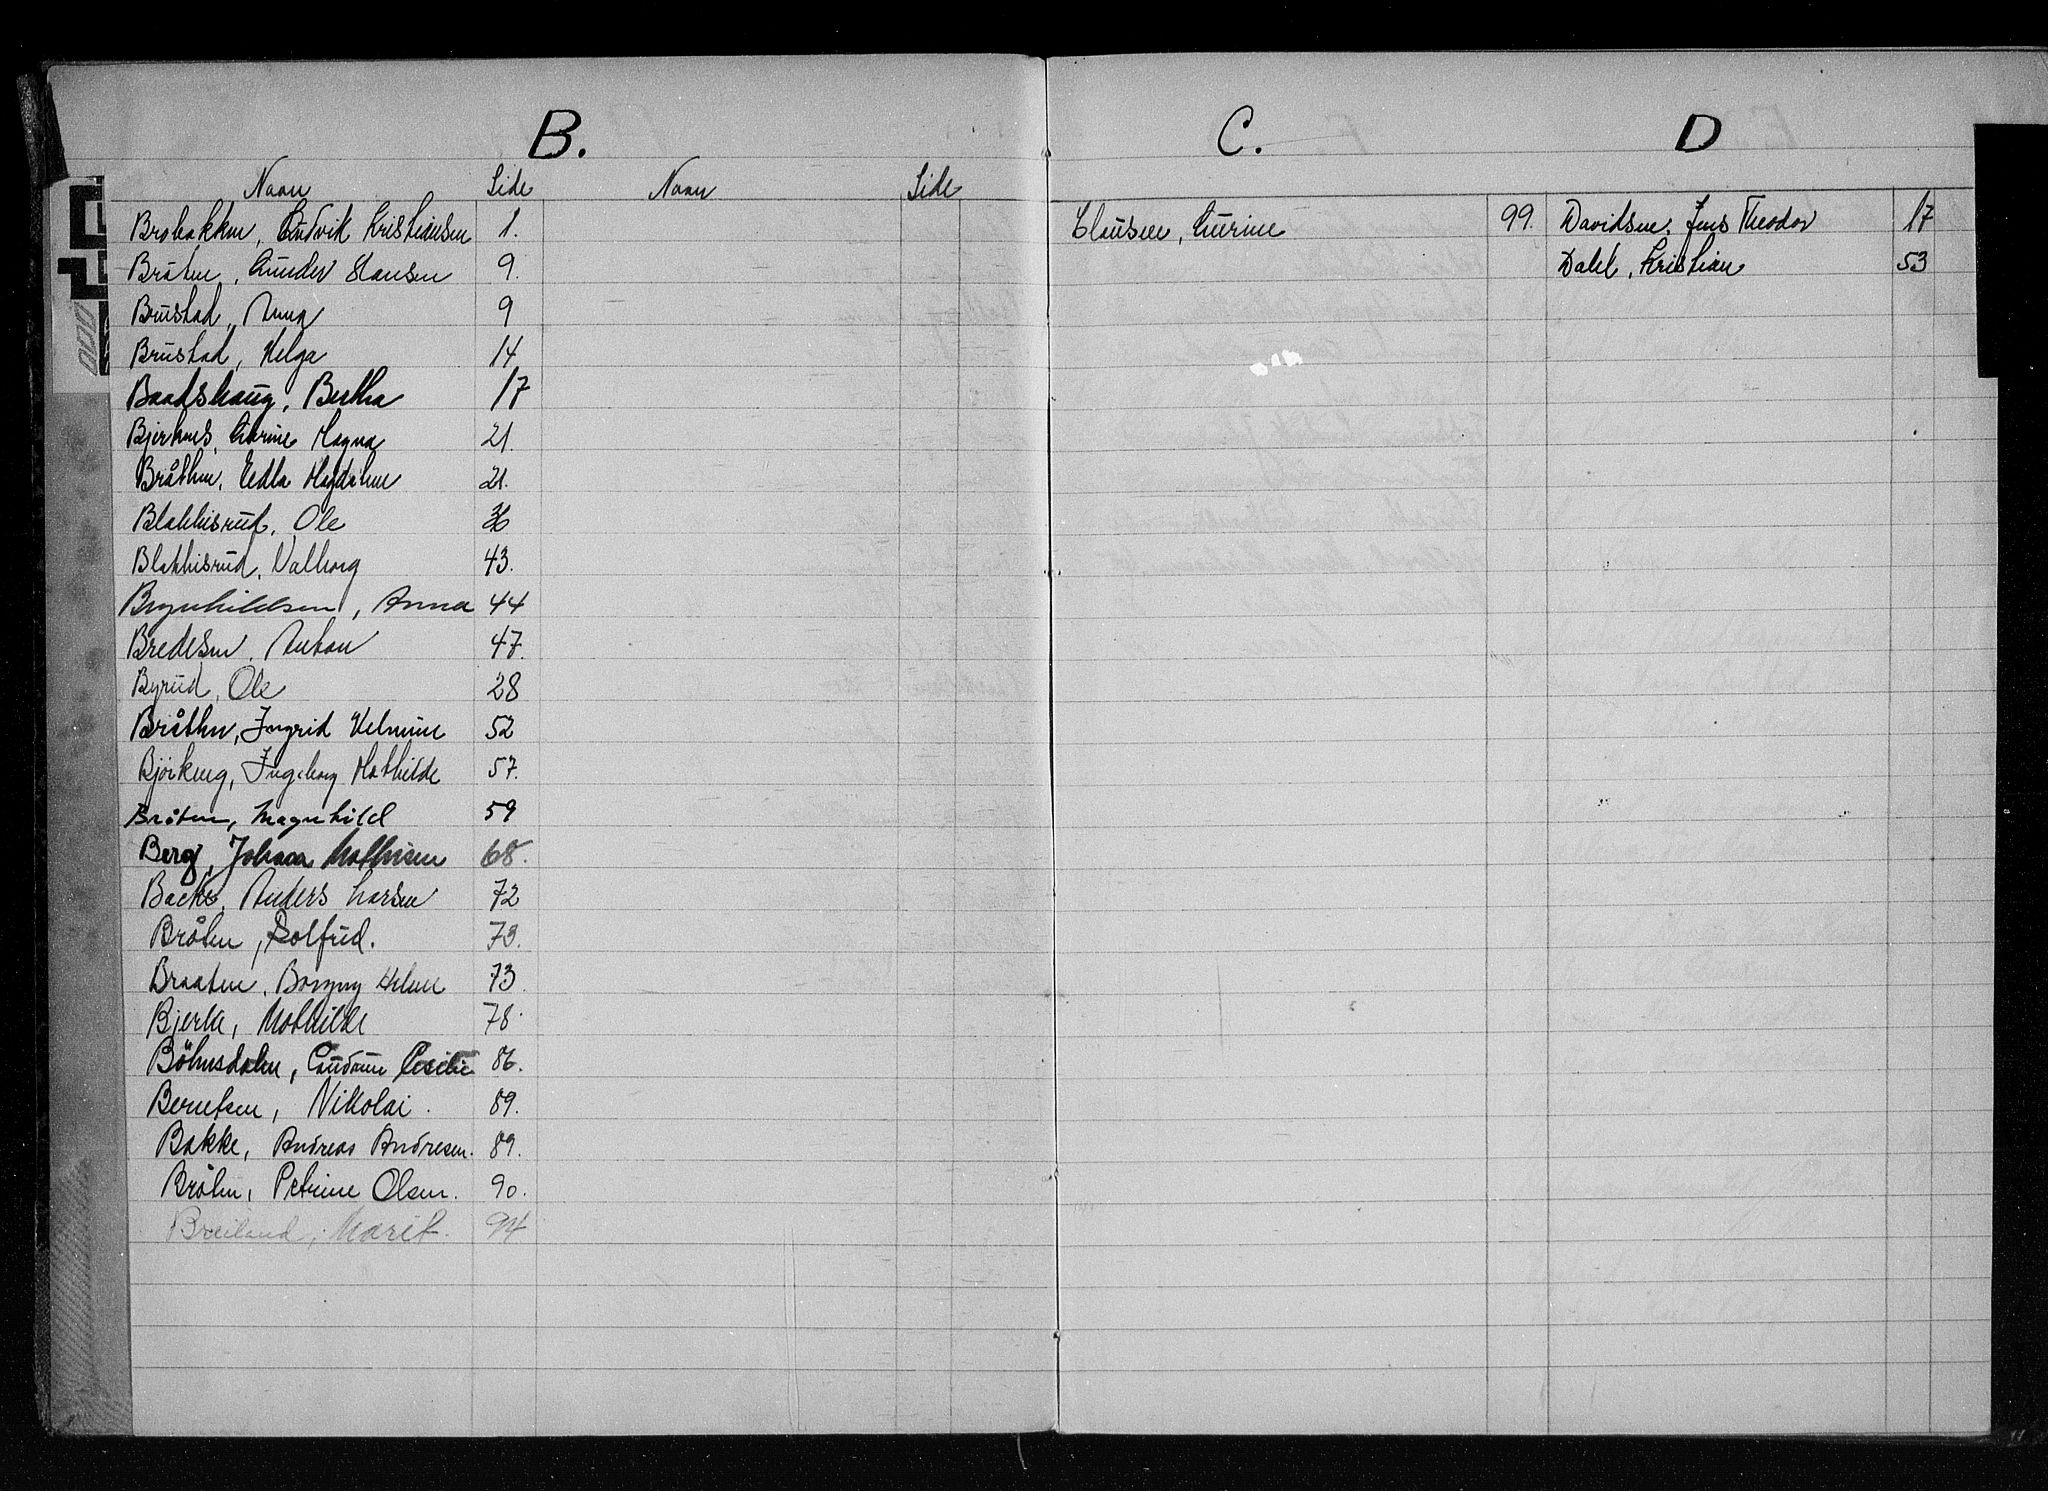 B.
Navn Side Navn Side
Brobakken, Ludvik Kristiansen 1.
Bråten, Gunder Hansen 9.
Brustad, Anna 9
Brustad, Helga 14
Baadshaug, Bertha 17
Bjerknes, Karine Magna 21.
Bråthen, Hedla Magdalene 21.
Blakkisrud, Ole 36
Blakkisrud, Valborg 43.
Brynhildsen, Anna 44
Bredesen, Anton 47.
Byrud, Ole 28
Bråthen, Ingrid Velmine 52
Björkeng, Ingeborg Mathilde 57.
Bråten, Magnhild 59
Berg, Johan Mathisen 68.
Backe, Anders Larsen 72
Bråten, Solfrid. 73.
Braaten, Borgny Helene 73.
Bjerke, Mathilde 78.
Böhnsdalen, Gudrun Cecilie 86.
Berntsen, Nikolai. 89.
Bakke, Andreas Andresen. 89.
Bråten, Petrine Olsen. 90.
Breiland, Marit. 94
C.
Clausen, Laurine 99.
D
Davidsen, Jens Theodor 17
Dahl, Kristian 53